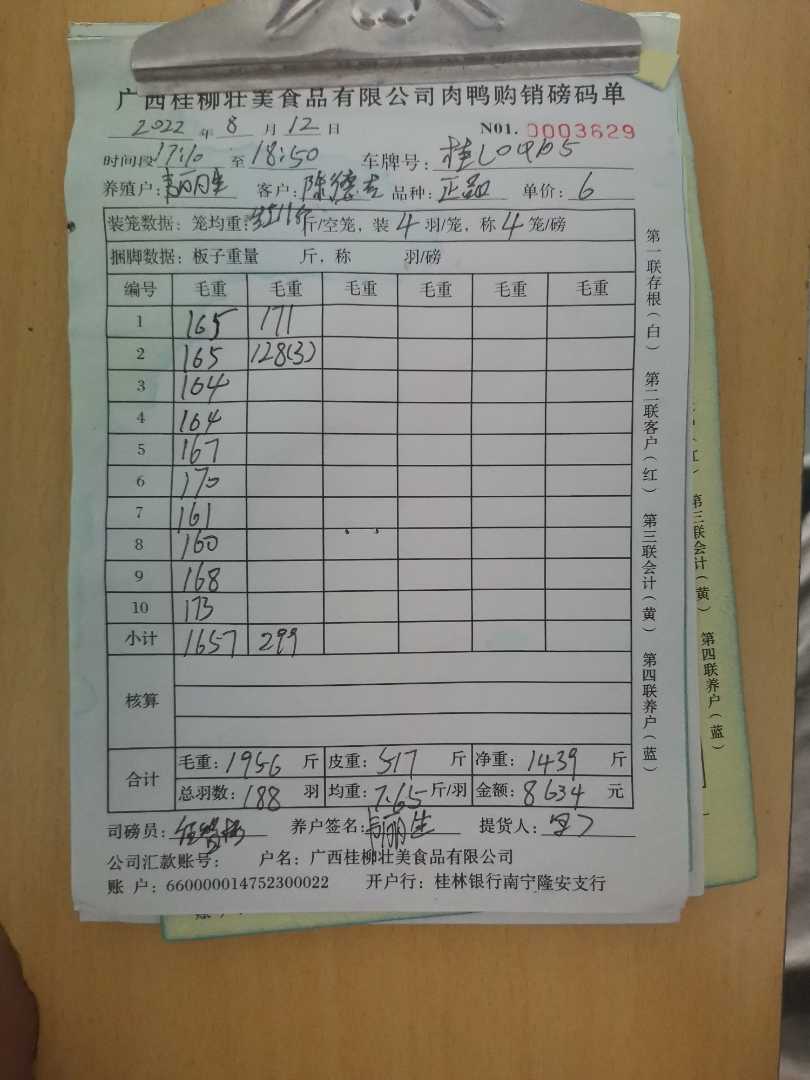 广西桂柳壮美食品有限公司肉鸭购销磅码单
2022 年 8 月 12 日 N01. 0003629
时间段 17:10 至 18:50 车牌号: 桂L04765
养殖户: 韦丽生 客户: 陈德 品种: 正品 单价: 6
装笼数据: 笼均重: 斤/空笼, 装 4 羽/笼, 称 4 笼/磅
捆脚数据: 板子重量 斤, 称 羽/磅
编号 毛重 毛重 毛重 毛重 毛重 毛重
1 165 171
2 165 128(3)
3 164
4 164
5 167
6 170
7 161
8 160
9 168
10 173
小计 1657 299
核算
合计 毛重: 1956 斤 皮重: 517 斤 净重: 1439 斤
总羽数: 188 羽 均重: 7.65 斤/羽 金额: 8634 元
司磅员: 养户签名: 韦丽生 提货人:
公司汇款账号: 户名: 广西桂柳壮美食品有限公司
账 户: 660000014752300022 开户行: 桂林银行南宁隆安支行
第一联存根(白) 第二联客户(红) 第三联会计(黄) 第四联养户(蓝)
第三联会计(黄) 第四联养户(蓝)